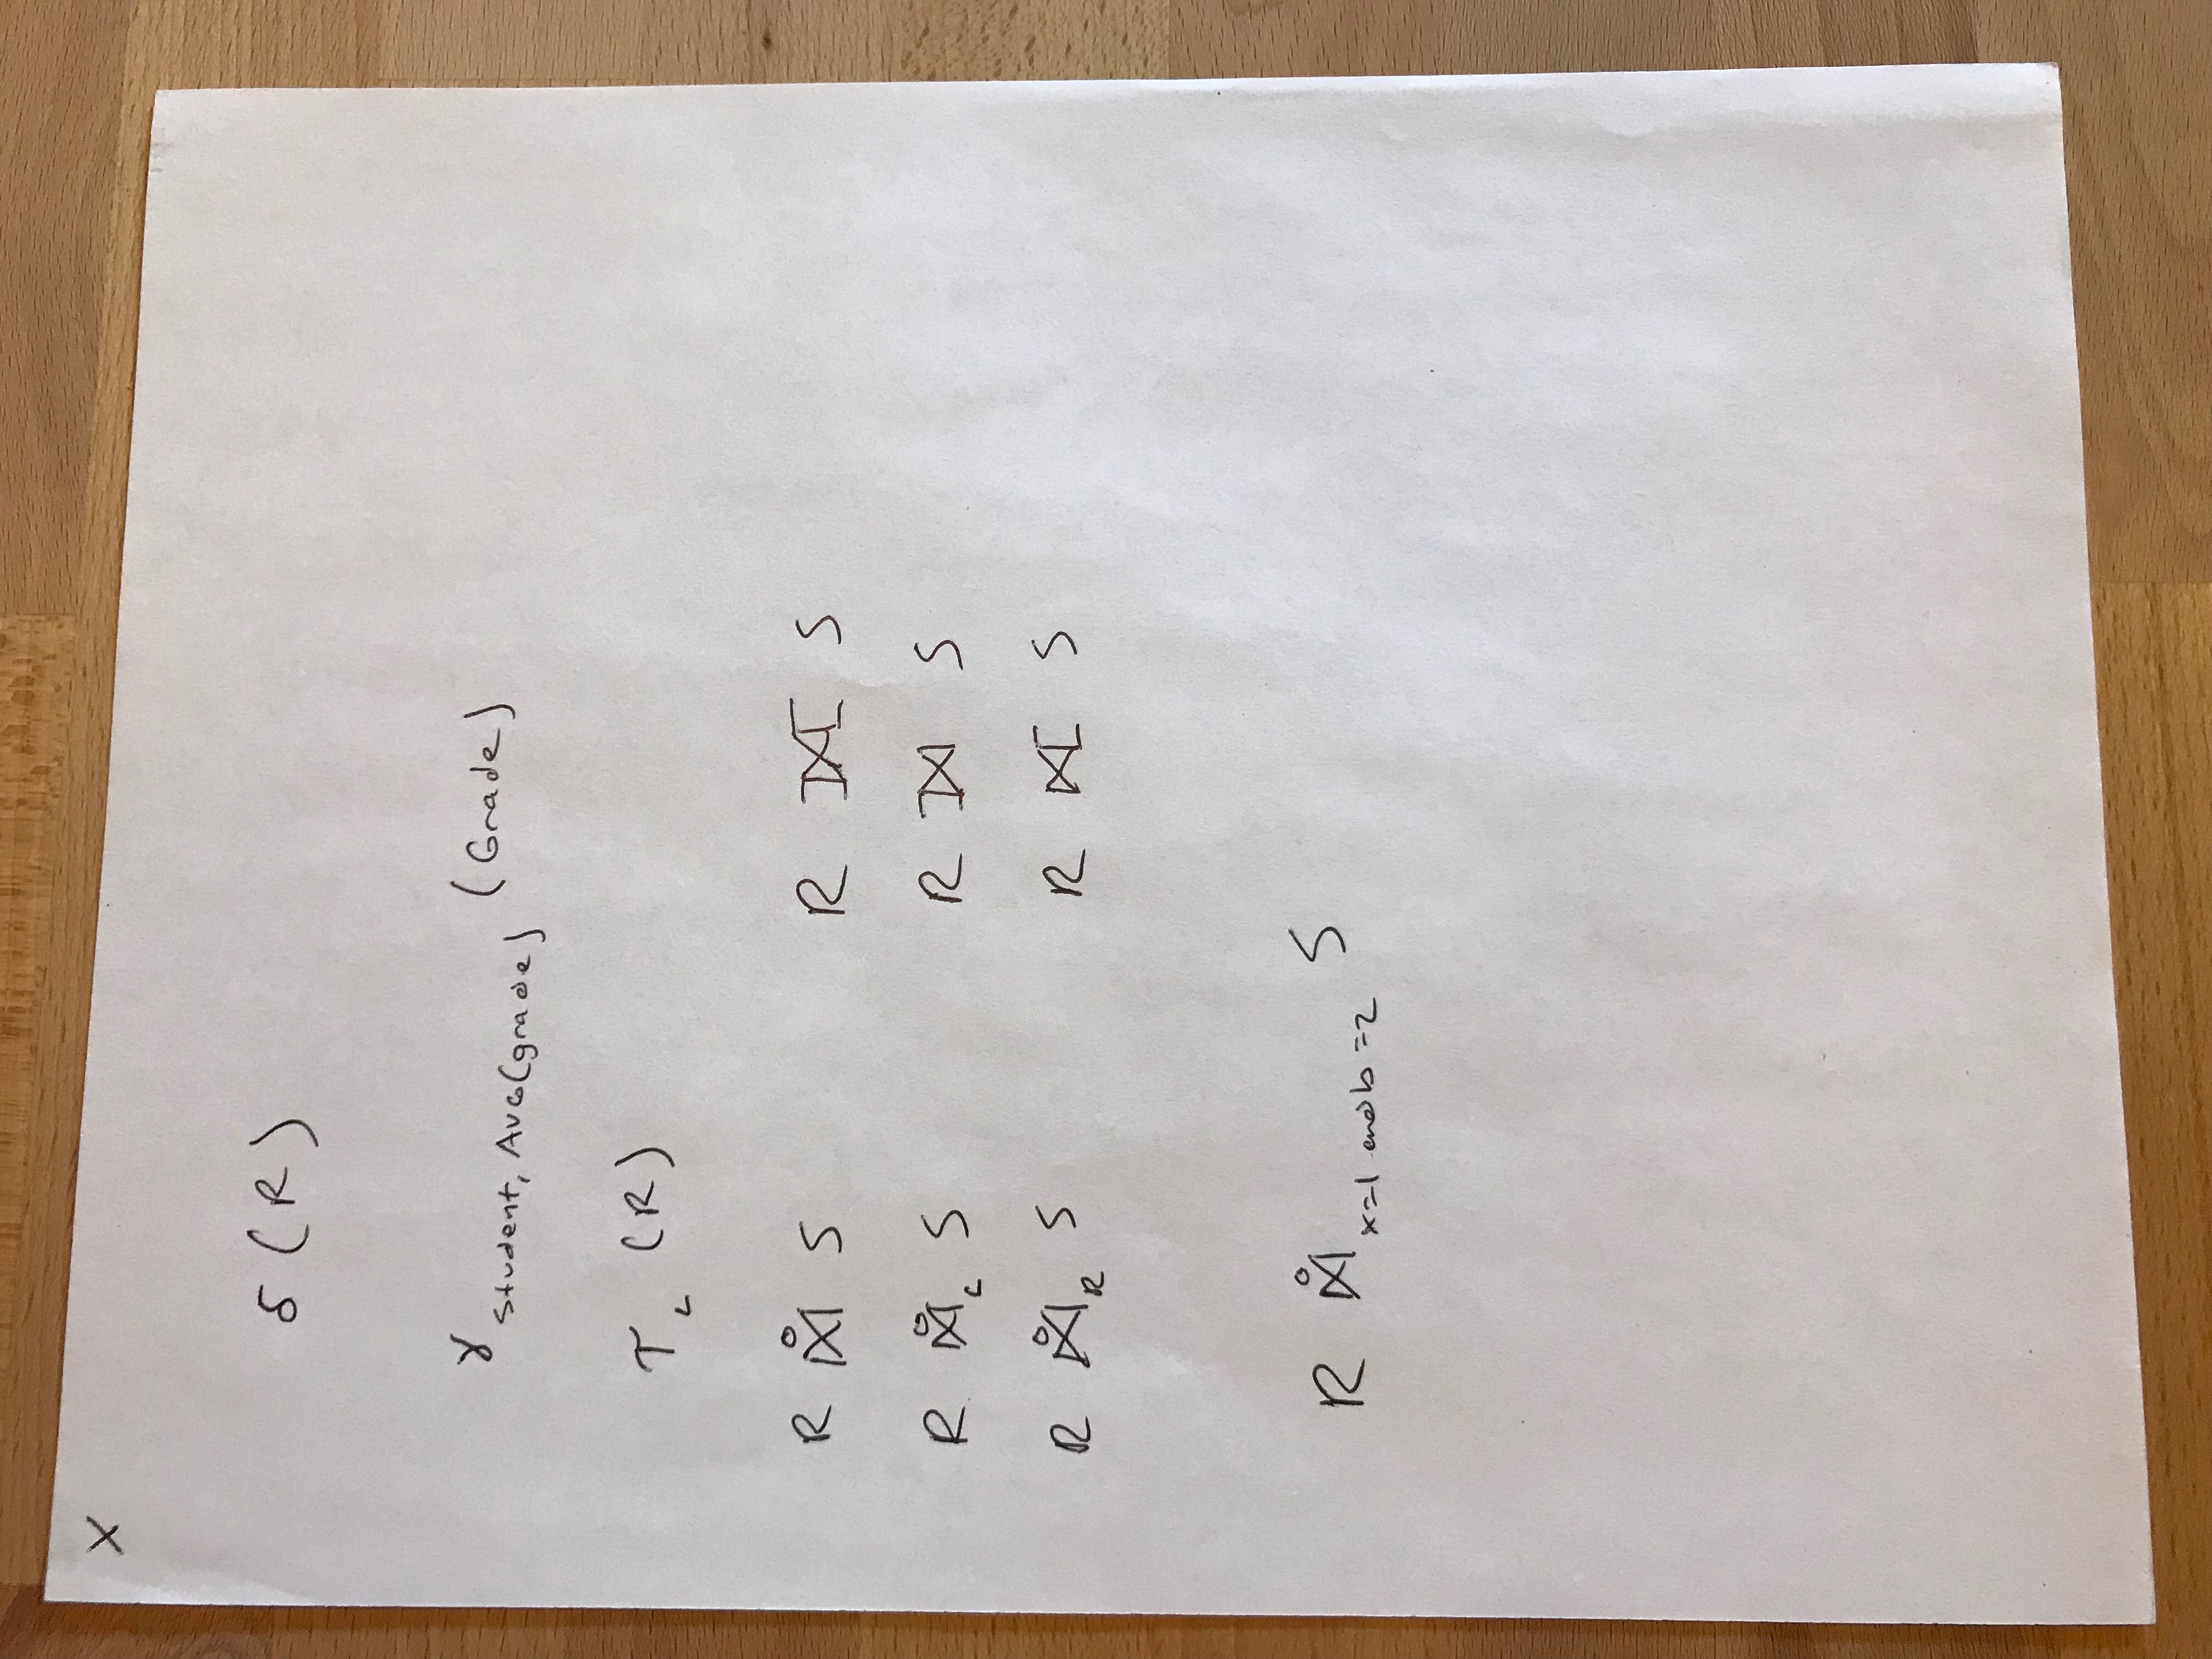 X
δ (R)
γ student, AVG(grade) (Grade)
τ L (R)
R ⋈̊ S R ⟗ S
R ⋈̊ L S R ⟕ S
R ⋈̊ R S R ⟖ S
R ⋈̊ x=1 and b=2 S